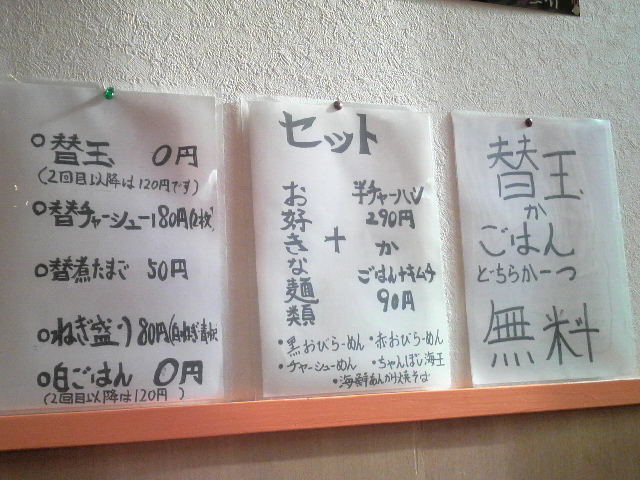 ○替玉 0円
(2回目以降は120円です)
○替チャーシュー180円(2枚)
○替煮たまご 50円
○ねぎ盛り80円(白ねぎ・青ねぎ
○白ごはん 0円
(2回目以降は120円 )
セット
お好きな麺類
+
半チャーハン
290円
か
ごはん+キムチ
90円
・黒おびらーめん ・赤おびらーめん
・チャーシューめん ・ちゃんぽし海王
・海鮮あんかけ焼そば
替玉
か
ごはん
どちらか一つ
無料